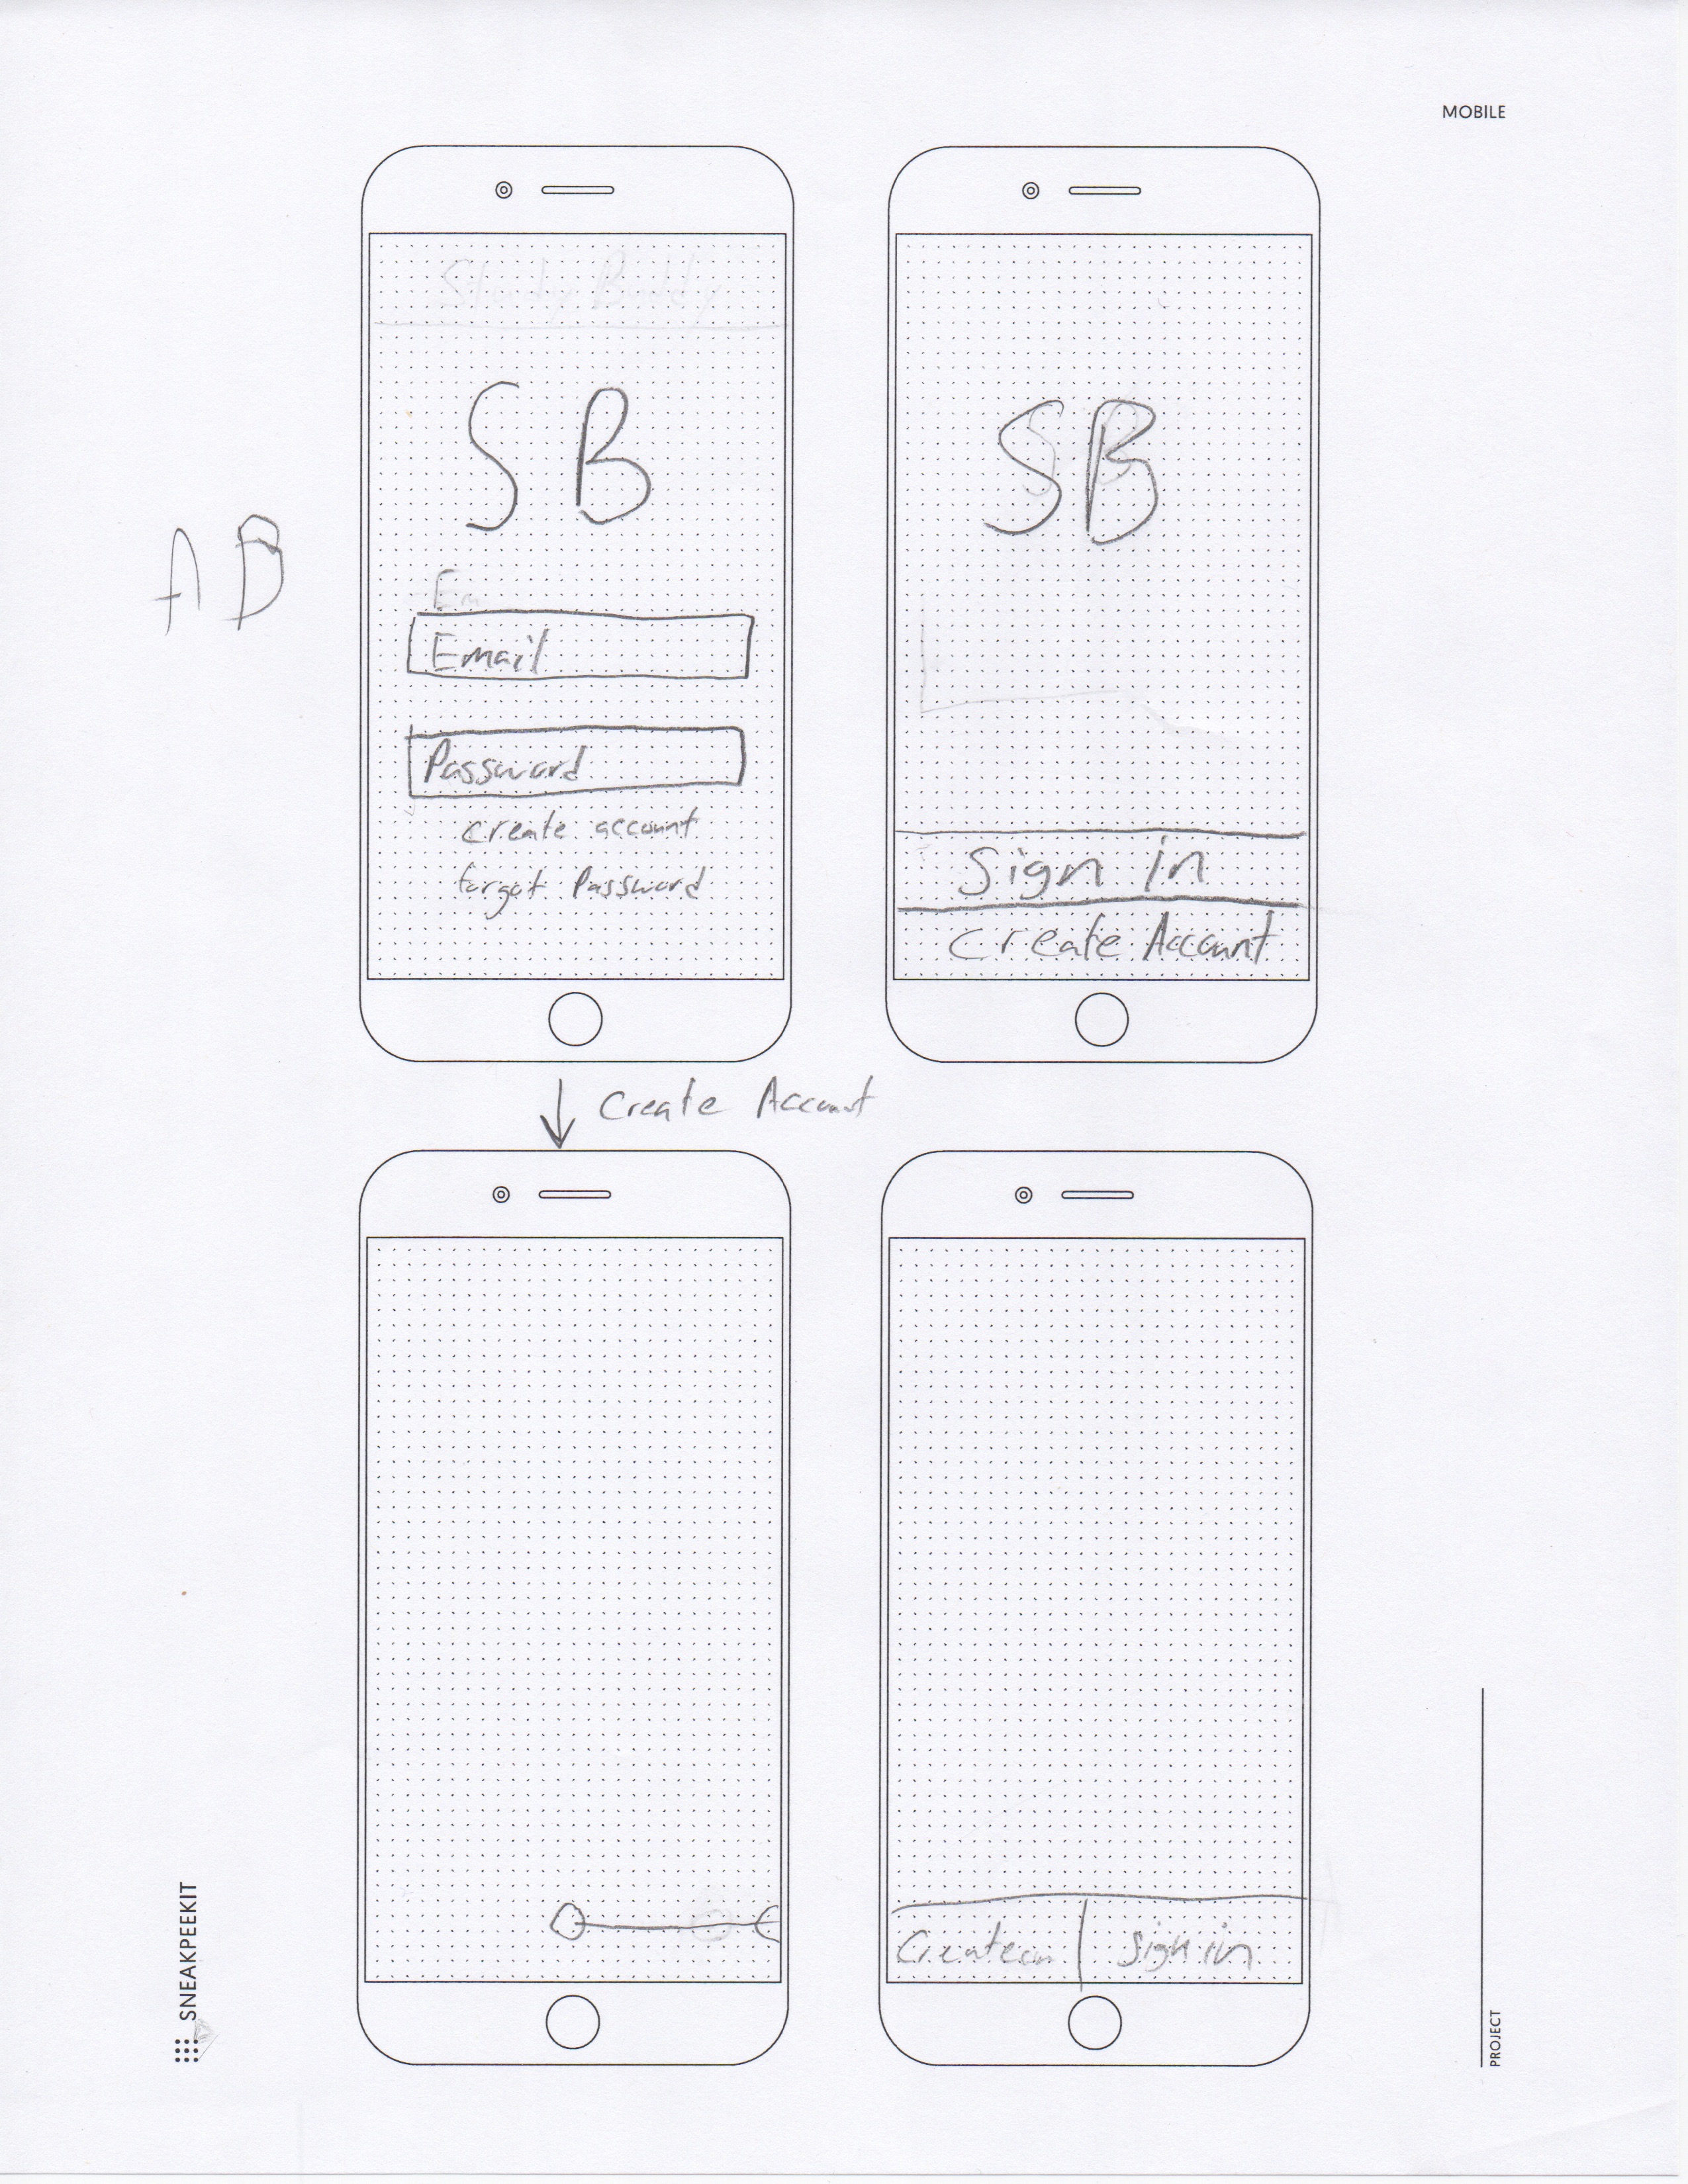 MOBILE
Study Buddy
S B
Em
Email
Password
create account
forgot Password
SB
Sign in
Create Account
A B
Create Account
Sign in
SNEAKPEEKIT
PROJECT